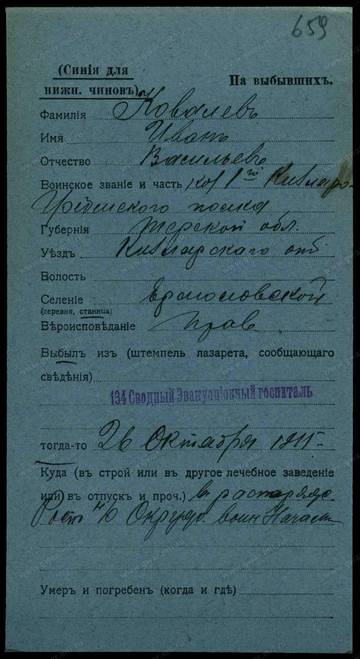 659
(Синія для
нижн. чиновъ)
На выбывшихъ.
Фамилія Ковалевъ
Имя Иванъ
Отчество Васильевъ
Воинское званіе и часть каз 1го Кизляро-
Гребенского полка
Губернія Терской обл.
Уѣздъ Кизлярскаго отд
Волость
Селеніе Ермоловской
(деревня, станица)
Вѣроисповѣданіе Прав
Выбылъ изъ (штемпель лазарета, сообщающаго
свѣдѣнія)
134 Сводный Эвакуаціонный госпиталь
тогда-то 26 Октября
Куда (въ строй или въ другое лечебное заведеніе
или въ отпускъ и проч.) въ распоряж.
Рост н/Д Окружн. воин Начальн
Умеръ и погребенъ (когда и гдѣ)